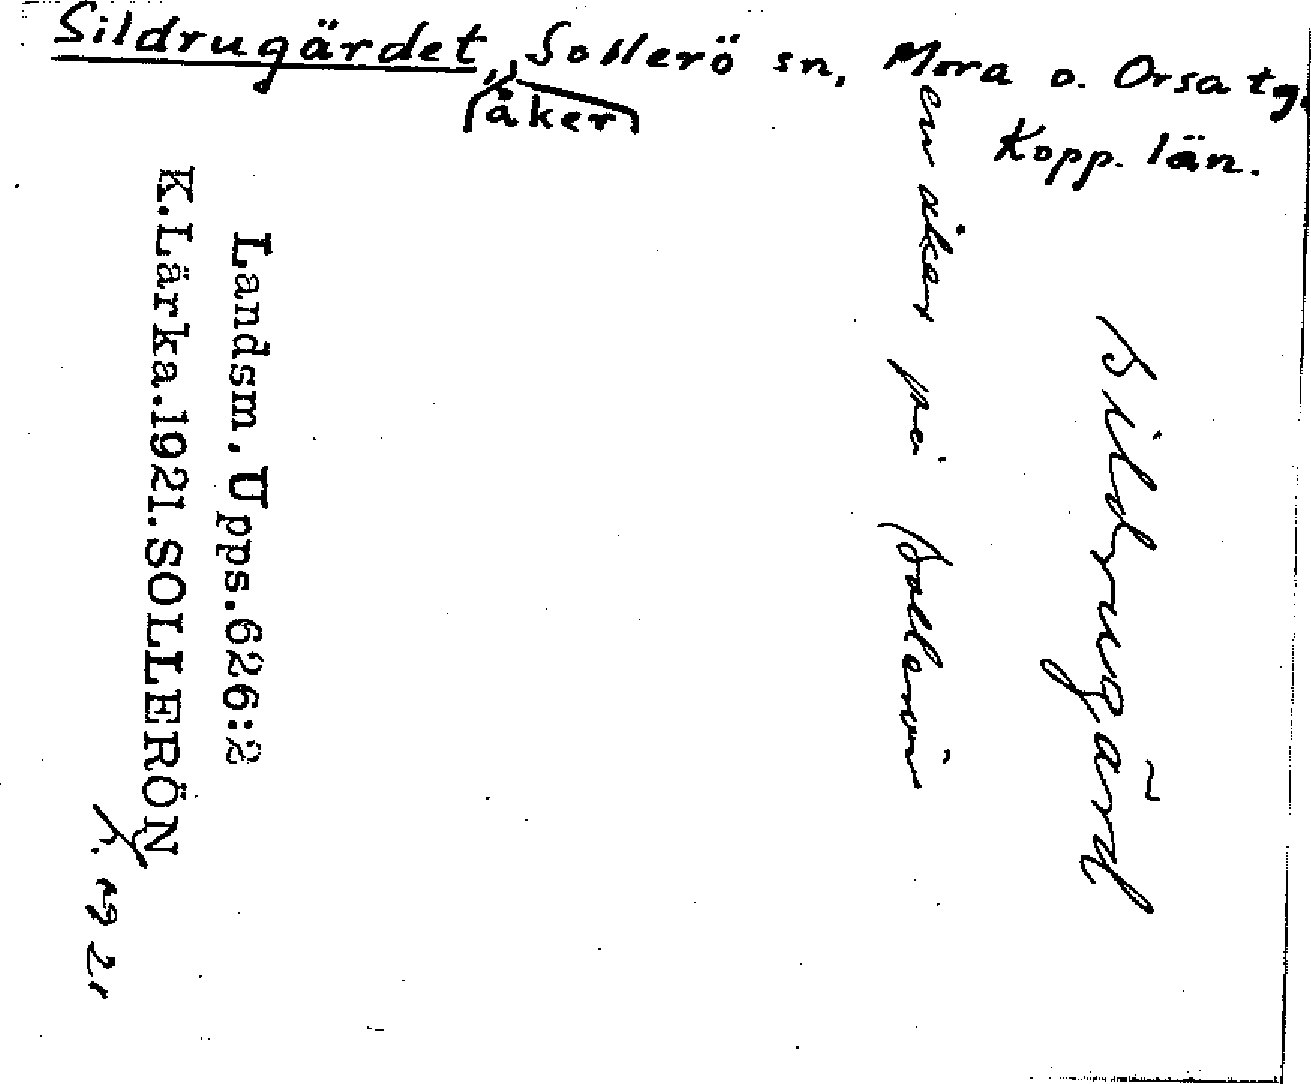 Sildrugärdet, Sollerö sn, Mora o. Orsa tg,
åker
Kopp. län.
Sildrugärd
en åker på Sollerön
Landsm. Upps. 626:2
K. Lärka. 1921. SOLLERÖN
1921